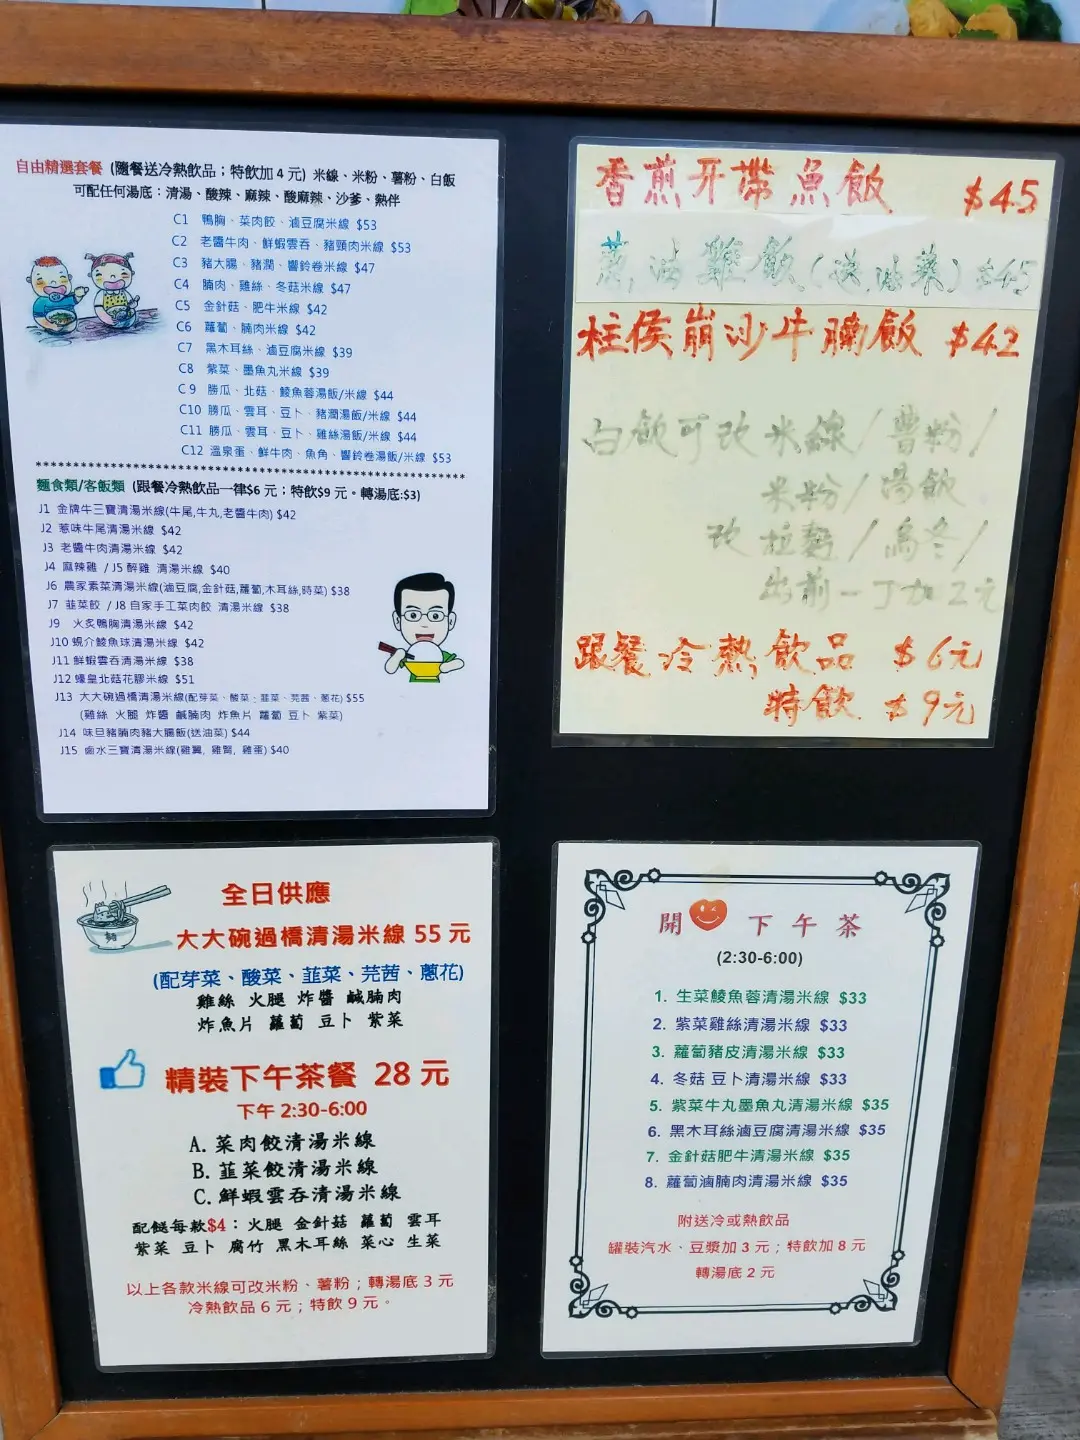 自由精選套餐 (隨餐送冷熱飲品；特飲加 4 元) 米線、米粉、薯粉、白飯
可配任何湯底：清湯、酸辣、麻辣、酸麻辣、沙爹、熱伴
C1 鴨胸、菜肉餃、滷豆腐米線 $53
C2 老醬牛肉、鮮蝦雲吞、豬頸肉米線 $53
C3 豬大腸、豬潤、響鈴卷米線 $47
C4 腩肉、雞絲、冬菇米線 $47
C5 金針菇、肥牛米線 $42
C6 蘿蔔、腩肉米線 $42
C7 黑木耳絲、滷豆腐米線 $39
C8 紫菜、墨魚丸米線 $39
C 9 勝瓜、北菇、鯪魚蓉湯飯/米線 $44
C10 勝瓜、雲耳、豆卜、豬潤湯飯/米線 $44
C11 勝瓜、雲耳、豆卜、雞絲湯飯/米線 $44
C12 溫泉蛋、鮮牛肉、魚角、響鈴卷湯飯/米線 $53
麵食類/客飯類 (跟餐冷熱飲品一律$6 元；特飲$9 元。轉湯底:$3)
J1 金牌牛三寶清湯米線(牛尾,牛丸,老醬牛肉) $42
J2 惹味牛尾清湯米線 $42
J3 老醬牛肉清湯米線 $42
J4 麻辣雞 / J5 醉雞 清湯米線 $40
J6 農家素菜清湯米線(滷豆腐,金針菇,蘿蔔,木耳絲,時菜) $38
J7 韮菜餃 / J8 自家手工菜肉餃 清湯米線 $38
J9 火炙鴨胸清湯米線 $42
J10 蜆介鯪魚球清湯米線 $42
J11 鮮蝦雲吞清湯米線 $38
J12 蠔皇北菇花膠米線 $51
J13 大大碗過橋清湯米線(配芽菜、酸菜、韮菜、芫茜、蔥花) $55
(雞絲 火腿 炸醬 鹹腩肉 炸魚片 蘿蔔 豆卜 紫菜)
J14 味旦豬腩肉豬大腸飯(送油菜) $44
J15 鹵水三寶清湯米線(雞翼, 雞腎, 雞蛋) $40
香煎牙帶魚飯 $45
蔥油雞飯(送油菜) $45
柱侯崩沙牛腩飯 $42
白飯可改米線/薯粉/
米粉/湯飯
改拉麵/烏冬/
出前一丁加2元
跟餐冷熱飲品 $6元
特飲 $9元
全日供應
大大碗過橋清湯米線 55 元
(配芽菜、酸菜、韮菜、芫茜、蔥花)
雞絲 火腿 炸醬 鹹腩肉
炸魚片 蘿蔔 豆卜 紫菜
精裝下午茶餐 28 元
下午 2:30-6:00
A. 菜肉餃清湯米線
B. 韮菜餃清湯米線
C. 鮮蝦雲吞清湯米線
配餸每款$4：火腿 金針菇 蘿蔔 雲耳
紫菜 豆卜 腐竹 黑木耳絲 菜心 生菜
以上各款米線可改米粉、薯粉；轉湯底 3 元
冷熱飲品 6 元；特飲 9 元。
開 下午茶
(2:30-6:00)
1. 生菜鯪魚蓉清湯米線 $33
2. 紫菜雞絲清湯米線 $33
3. 蘿蔔豬皮清湯米線 $33
4. 冬菇 豆卜清湯米線 $33
5. 紫菜牛丸墨魚丸清湯米線 $35
6. 黑木耳絲滷豆腐清湯米線 $35
7. 金針菇肥牛清湯米線 $35
8. 蘿蔔滷腩肉清湯米線 $35
附送冷或熱飲品
罐裝汽水、豆漿加 3 元；特飲加 8 元
轉湯底 2 元